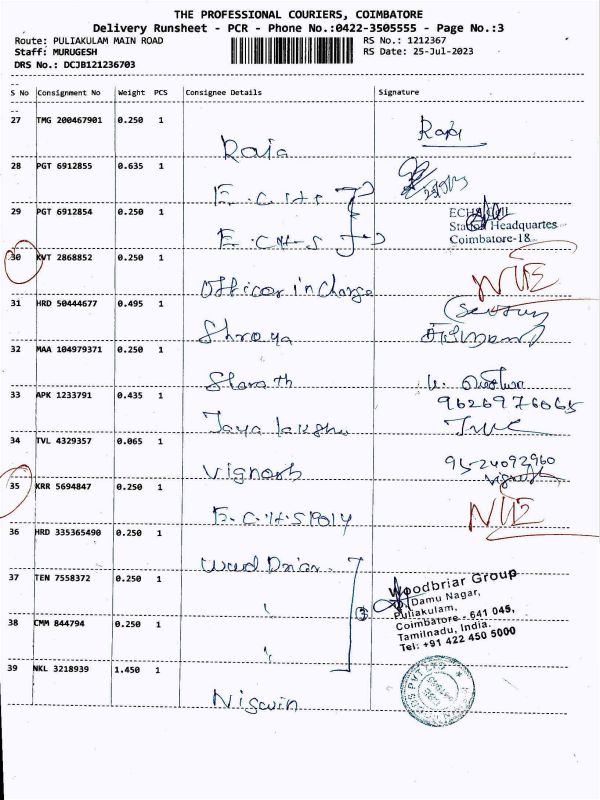 THE PROFESSIONAL COURIERS, COIMBATORE
Delivery Runsheet - PCR - Phone No.:0422-3505555 - Page No.:3
Route: PULIAKULAM MAIN ROAD RS No.: 1212367
Staff: MURUGESH RS Date: 25-Jul-2023
DRS No.: DCJB121236703
S No Consignment No Weight PCS Consignee Details Signature
27 TMG 200467901 0.250 1
Raja Raja
28 PGT 6912855 0.635 1
E.C.H.S
29 PGT 6912854 0.250 1 ECHS Cell
Station Headquartes
E.CH-S Coimbatore-18
30 KVT 2868852 0.250 1
Officer in charge
31 HRD 50444677 0.495 1
Shroya
32 MAA 104979371 0.250 1
Sharath
33 APK 1233791 0.435 1 9626976065
Jaya lakshmi
34 TVL 4329357 0.065 1
Vignesh 9524092960
35 KRR 5694847 0.250 1
E.C.H.S
36 HRD 335365490 0.250 1
37 TEN 7558372 0.250 1 Woodbriar Group
Damu Nagar,
Puliakulam,
38 CMM 844794 0.250 1 Coimbatore - 641 045,
Tamilnadu, India.
Tel: +91 422 450 5000
39 NKL 3218939 1.450 1